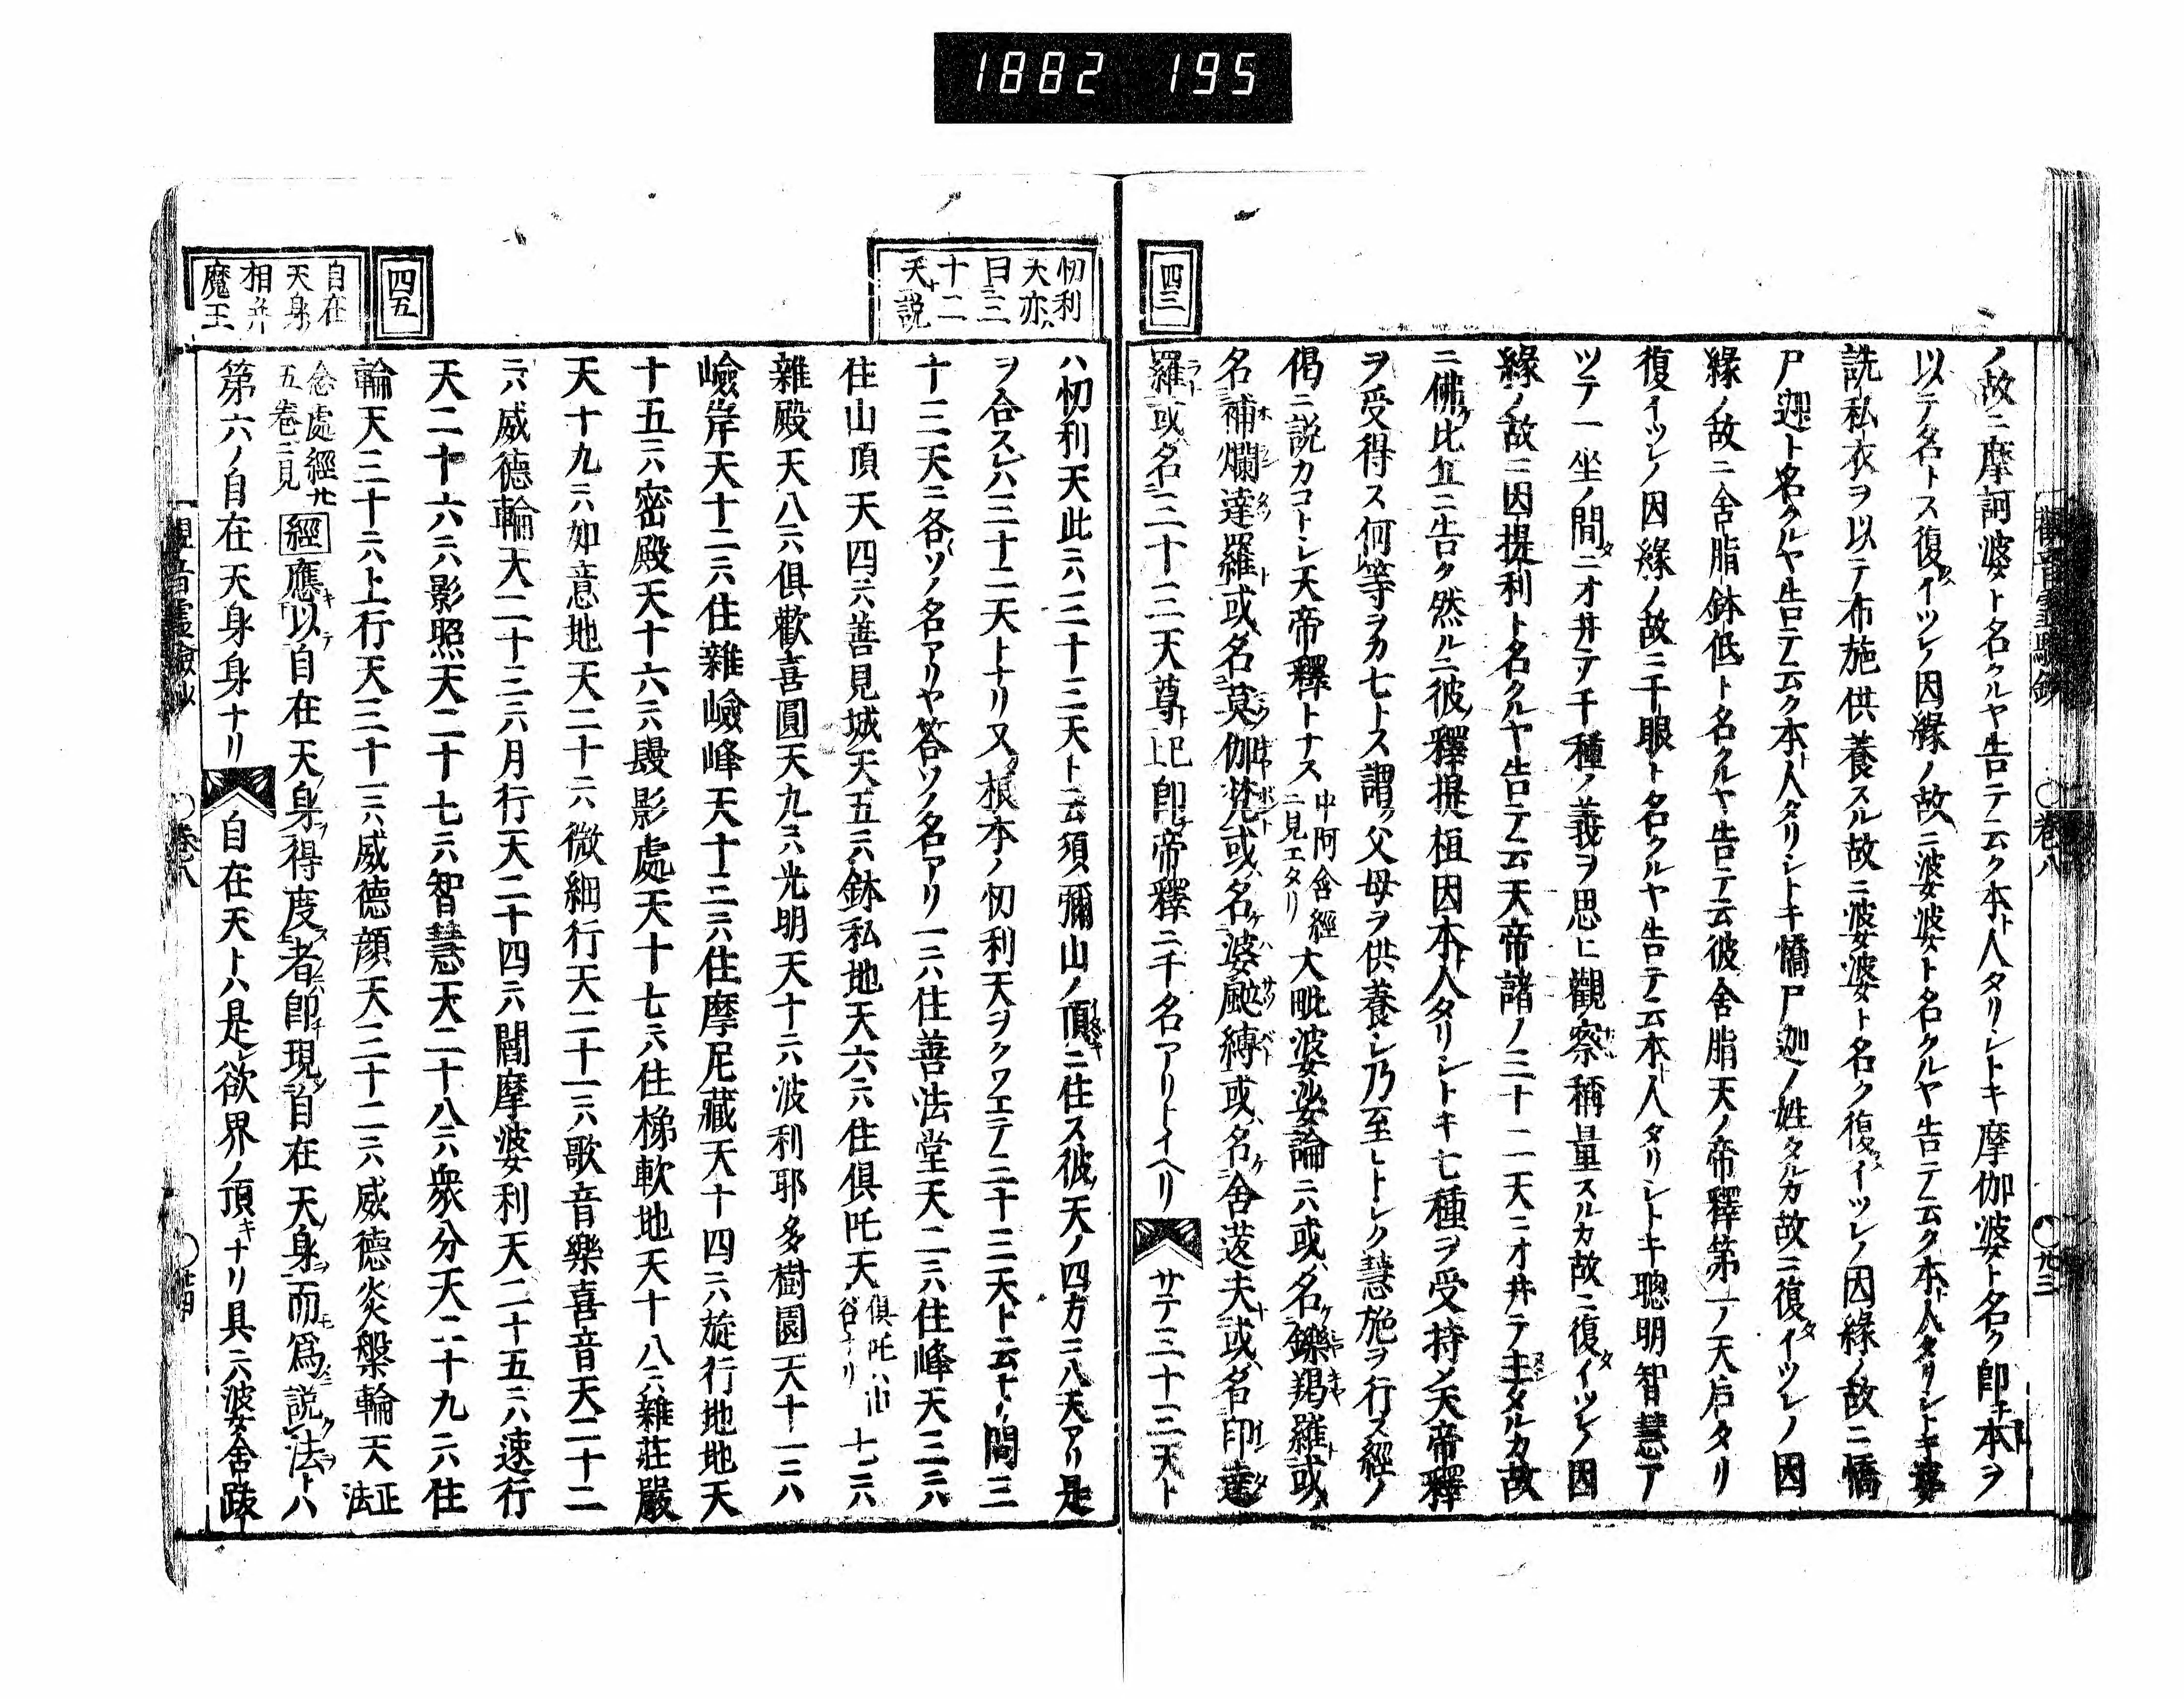 1882 195
四三
ノ故ニ摩訶婆ト名クルヤ告テ云ク本ト人タリシトキ摩伽婆ト名ク卽チ本ヲ
以テ名トス復タイツレノ因緣ノ故ニ婆娑婆ト名クルヤ告テ云ク本ト人タリシトキ數
詵私衣ヲ以テ布施供養スル故ニ婆娑婆ト名ク復タイツレノ因緣ノ故ニ憍
尸迦ト名クルヤ告テ云ク本ト人タリシトキ憍尸迦ノ姓タルカ故ニ復タイツレノ因
緣ノ故ニ舍脂鉢低ト名クルヤ告テ云彼舍脂天ノ帝釋第一ノ天后タリ
復イツレノ因緣ノ故ニ千眼ト名クルヤ告テ云本ト人タリシトキ聰明智慧ア
ツテ一坐ノ間タニオ井テ千種ノ義ヲ思ヒ觀察稱量スルカ故ニ復タイツレノ因
緣ノ故ニ因提利ト名クルヤ告テ云天帝諸ノ三十二天ニオ井テ主タルカ故
ニ佛ケ比丘ニ告ク然ルニ彼ノ釋提桓因本ト人タリシトキ七種ヲ受持シ天帝釋
ヲ受得ス何等ヲカ七トス謂ク父母ヲ供養シ乃至ヒトシク慧施ヲ行ス經ノ
偈ニ説カコトシ天帝釋トナス 中阿含經ニ見エタリ 大毗婆娑論ニハ或ハ名ケ鑠羯羅ト或ハ
名補爛達羅ト或ハ名莫伽梵ト或ハ名ケ婆颭縛ト或ハ名ケ舍芨夫ト或ハ名印達
羅ト或ハ名三十三天尊ト已上 卽チ帝釋ニ千名アリトイヘリ サテ三十三天ト
觀音靈驗鈔 ○卷八 ○廿三
忉利天亦ハ曰三十三天ト説
ハ忉利天此ニハ三十三天ト云須彌山ノ頂ニ住ス彼ノ天ノ四方ニ八天アリ是
ヲ合スレハ三十二天トナリ又タ根本ノ忉利天ヲクワエテ三十三天ト云ナリ問三
十三天ニ各〱ソノ名アリヤ答ソノ名アリ一ニハ住善法堂天二ニハ住峰天三ニハ
住山頂天四ニハ善見城天五ニハ鉢私地天六ニハ住倶吒天 倶吒ハ山谷ナリ 七ニハ
雜殿天八ニハ倶歡喜園天九ニハ光明天十ニハ波利耶多樹園天十一ニハ
嶮岸天十二ニハ住雜嶮峰天十三ニハ住摩尼藏天十四ニハ旋行地天
十五ニハ密殿天十六ニハ鬘影處天十七ニハ住梯軟地天十八ニハ雜莊嚴
天十九ニハ如意地天二十ニハ微細行天二十一ニハ歌音樂喜音天二十二
ニハ威德輪天二十三ニハ月行天二十四ニハ閻摩婆利天二十五ニハ速行
天二十六ニハ影照天二十七ニハ智慧天二十八ニハ衆分天二十九ニハ住
輪天三十ニハ上行天三十一ニハ威德顏天三十二ニハ威德炎槃輪天 正法
念處經廿五卷ニ見 經 應キ以テ自在天身ヲ得度ス者卽チ現シ自在天身ヲ而モ爲ニ説ク法ヲトハ
第六ノ自在天身身ナリ 自在天トハ是レ欲界ノ頂キナリ具ニハ婆舍跋
四五
自在天身相并魔王
觀音靈驗鈔 ○卷八 ○廿四